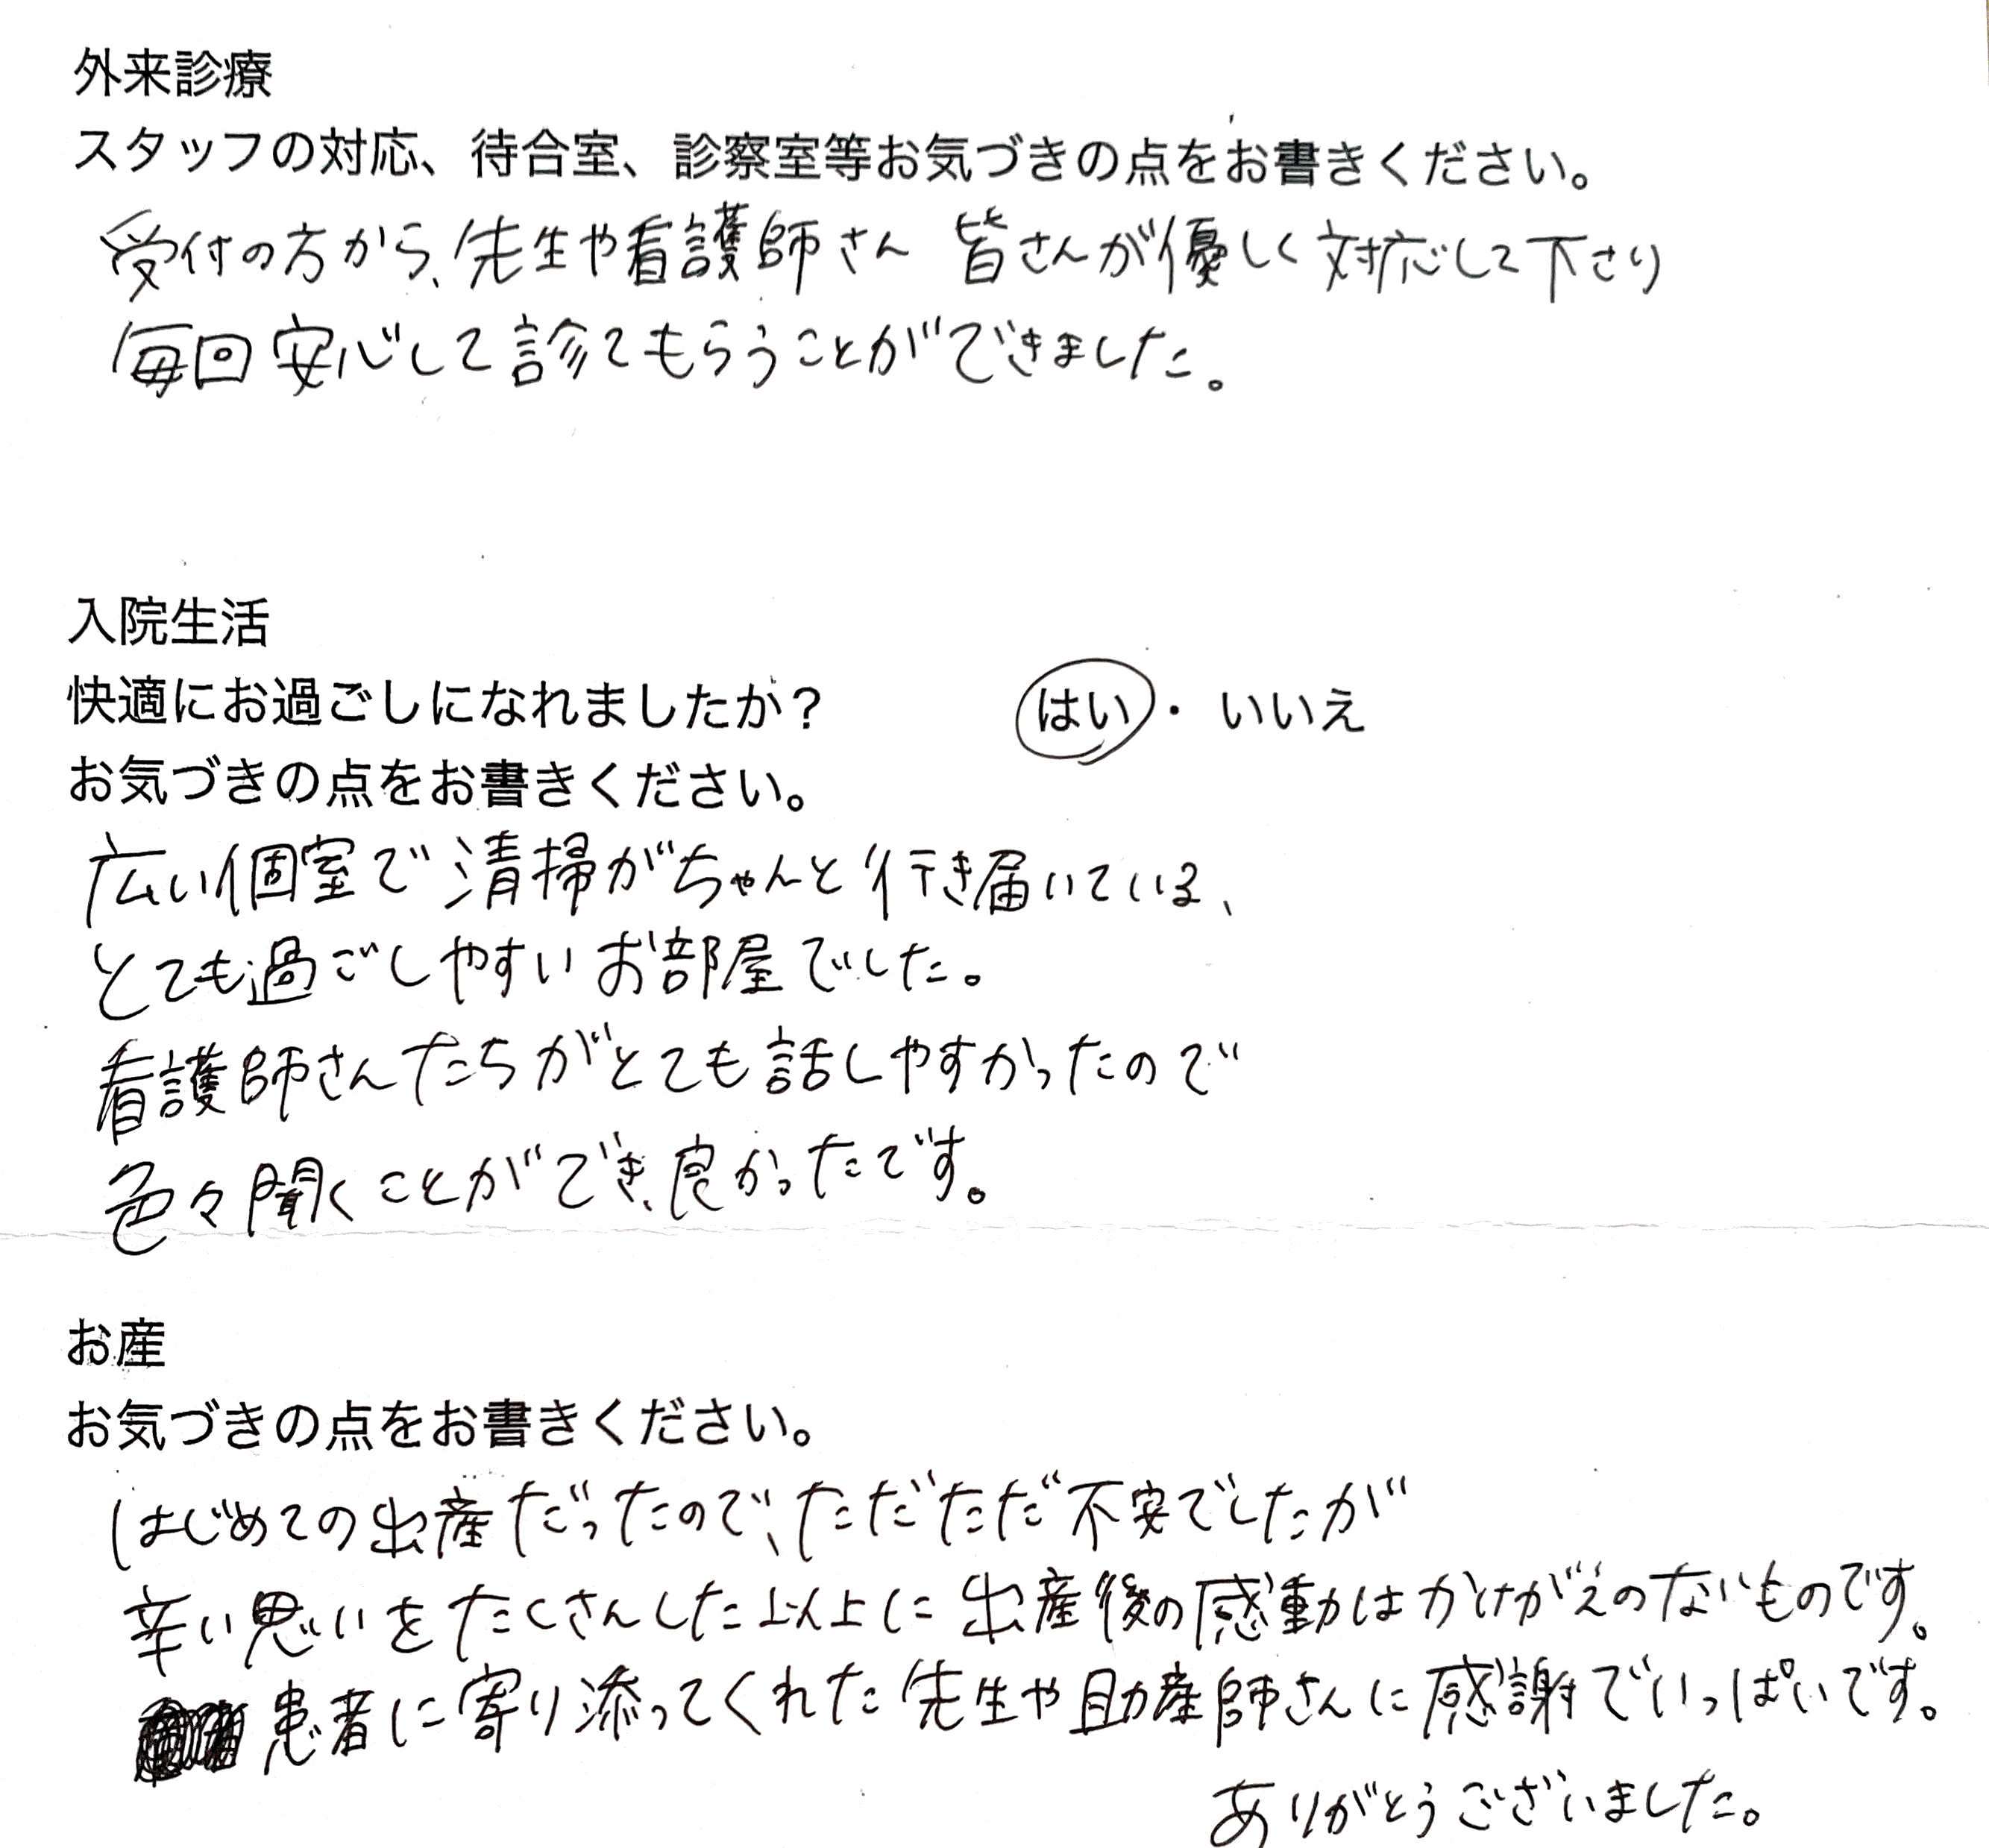 外来診療
スタッフの対応、待合室、診察室等お気づきの点をお書きください。
受付の方から、先生や看護師さん 皆さんが優しく対応して下さり
毎回安心して診てもらうことができました。
入院生活
快適にお過ごしになれましたか？ はい・いいえ
お気づきの点をお書きください。
広い個室で清掃がちゃんと行き届いている、
とても過ごしやすいお部屋でした。
看護師さんたちがとても話しやすかったので
色々聞くことができ、良かったです。
お産
お気づきの点をお書きください。
はじめての出産だったので、ただただ不安でしたが
辛い思いをたくさんした以上に出産後の感動はかけがえのないものです。
患者に寄り添ってくれた先生や助産師さんに感謝でいっぱいです。
ありがとうございました。